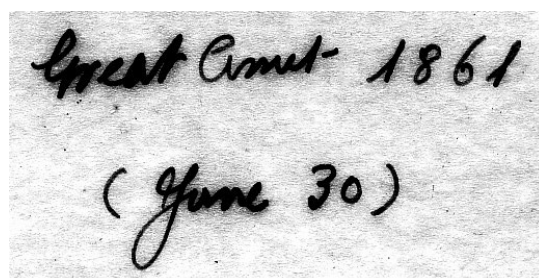 Great Comet 1861
(June 30)